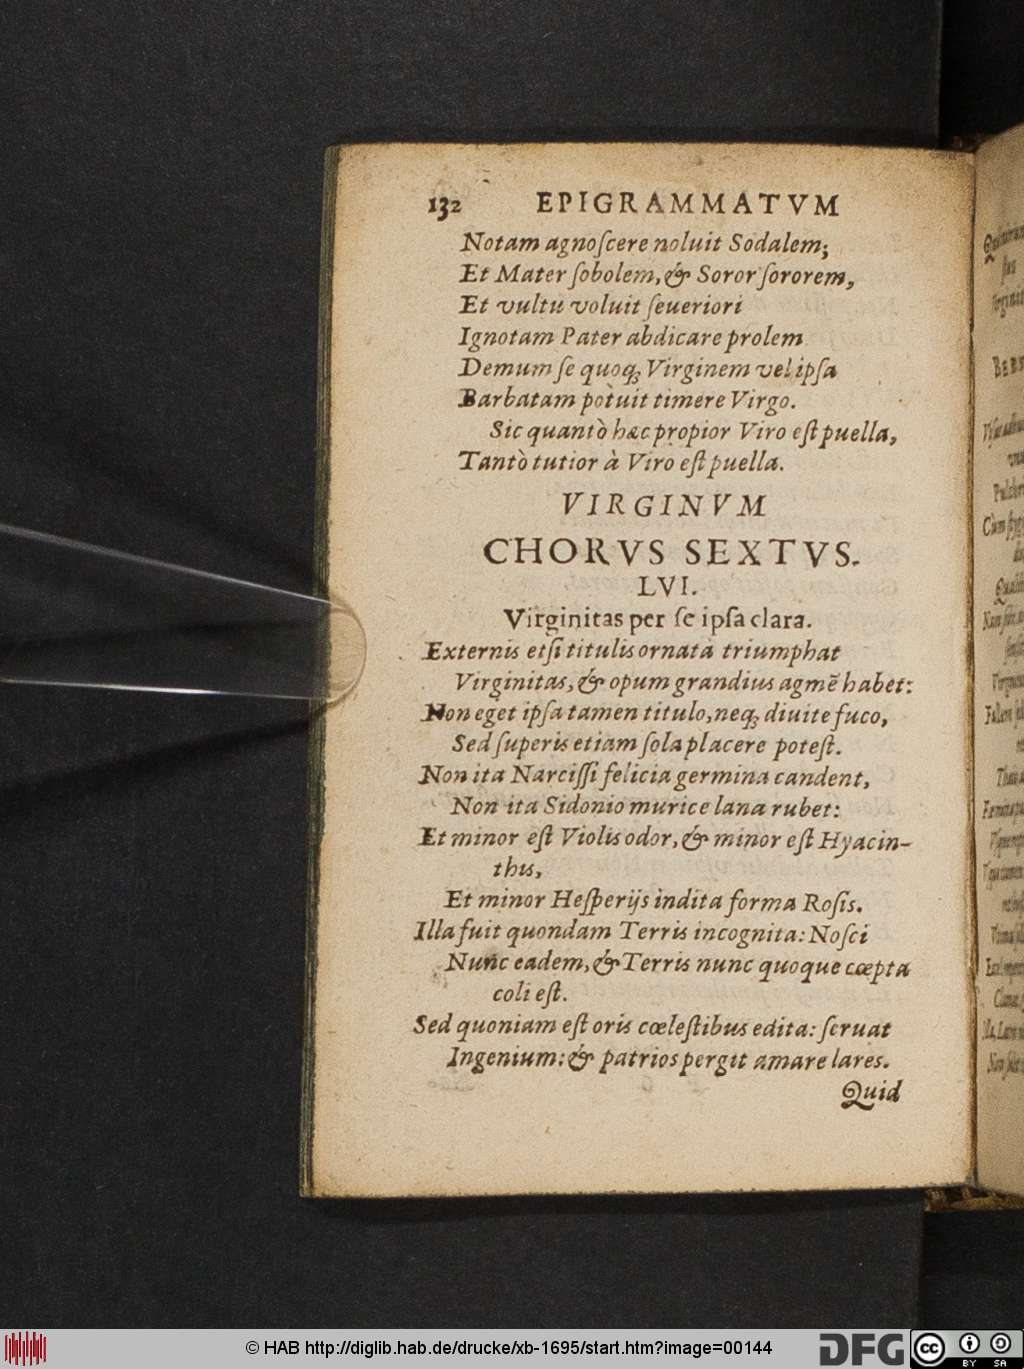 132 EPIGRAMMATVM
Notam agnoſcere noluit Sodalem;
Et Mater ſobolem, & Soror ſororem,
Et vultu voluit ſeueriori
Ignotam Pater abdicare prolem
Demum ſe quoq; Virginem vel ipſa
Barbatam potuit timere Virgo.
Sic quantò hæc propior Viro eſt puella,
Tantò tutior à Viro eſt puella.
VIRGINVM
CHORVS SEXTVS.
LVI.
Virginitas per ſe ipſa clara.
Externis etſi titulis ornata triumphat
Virginitas, & opum grandius agmē habet:
Non eget ipſa tamen titulo, neq; diuite fuco,
Sed ſuperis etiam ſola placere poteſt.
Non ita Narciſſi felicia germina candent,
Non ita Sidonio murice lana rubet:
Et minor eſt Violis odor, & minor eſt Hyacin-
thus,
Et minor Heſperijs indita forma Roſis.
Illa fuit quondam Terris incognita: Noſci
Nunc eadem, & Terris nunc quoque cœpta
coli eſt.
Sed quoniam eſt oris cœleſtibus edita: ſeruat
Ingenium: & patrios pergit amare lares.
Quid
© HAB http://diglib.hab.de/drucke/xb-1695/start.htm?image=00144
DFG
cc
BY SA